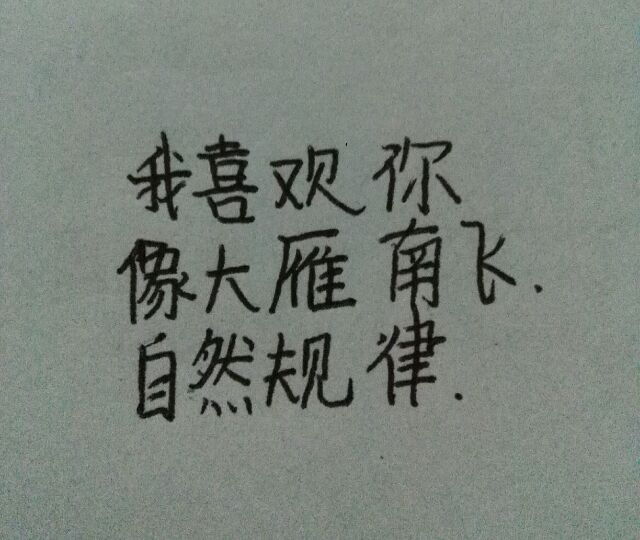 我喜欢你
像大雁南飞.
自然规律.